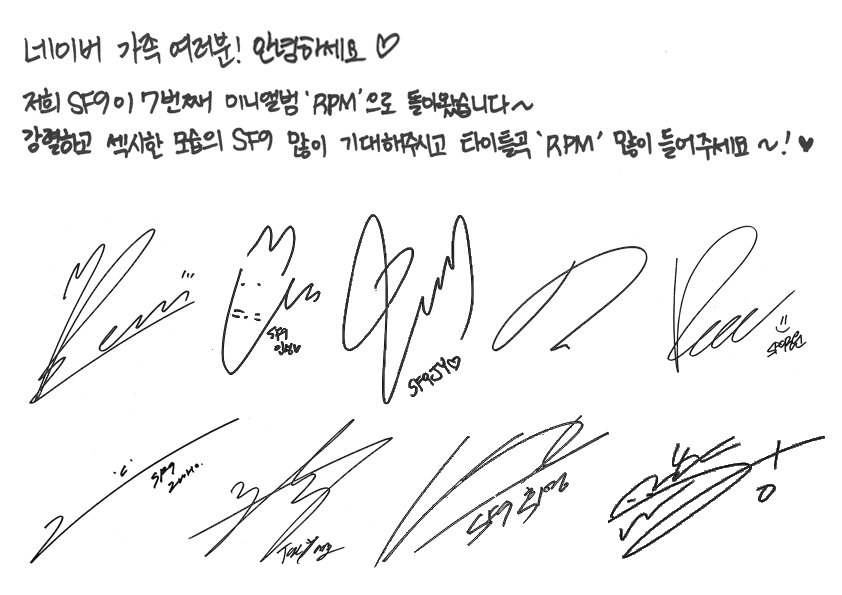 네이버 가족 여러분! 안녕하세요 ♡
저희 SF9이 7번째 미니앨범 'RPM'으로 돌아왔습니다~
강렬하고 섹시한 모습의 SF9 많이 기대해주시고 타이틀곡 'RPM' 많이 들어주세요 ~! ♥
SF9
인성♥
SF9JY♡
SF9
SF9
ZUHO.
SF9 휘영